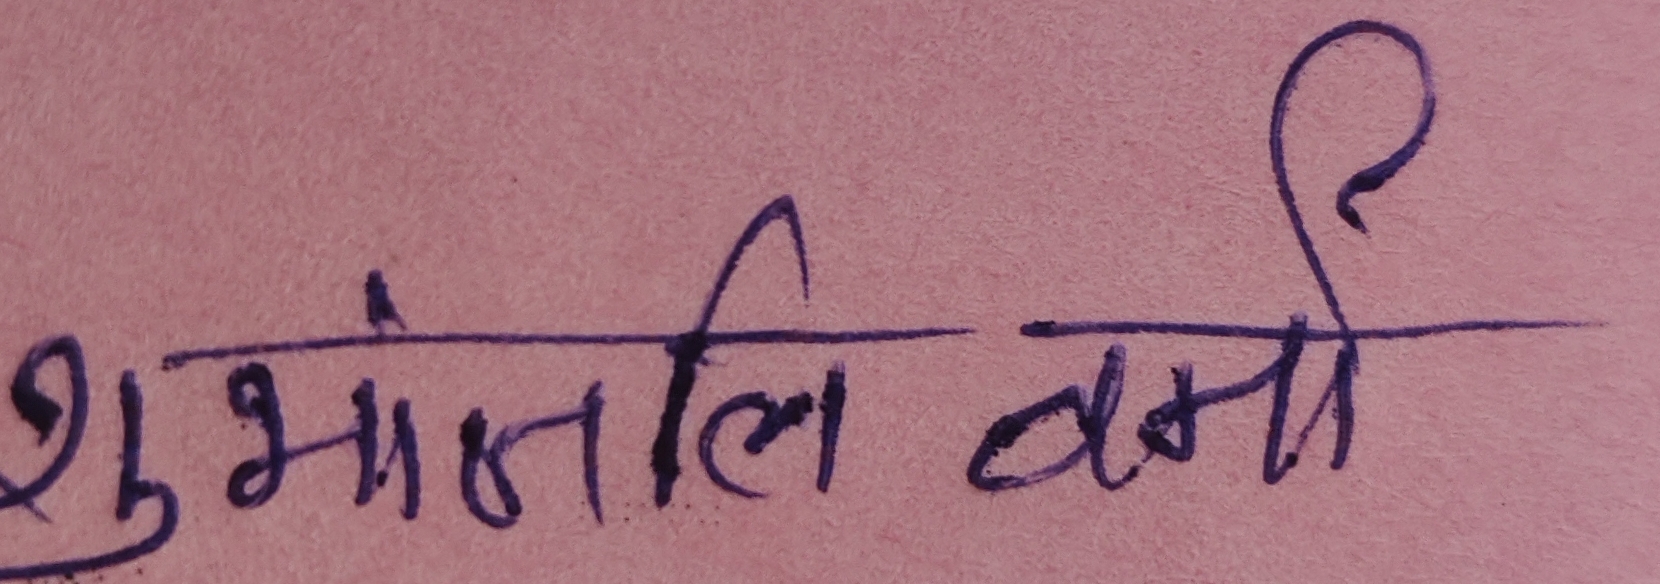 शुभांजलि वर्मा